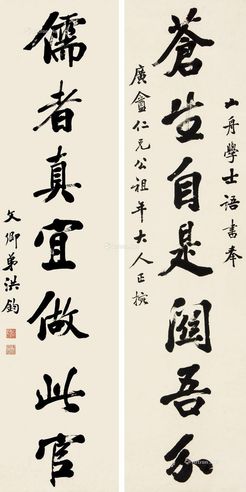 山舟學士語書奉
蒼生自是關吾分
廣盦仁兄公祖年大人正擬
儒者真宜做此官
文卿弟洪鈞